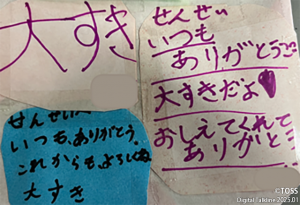 大すき
せんせい
いつも
ありがとう
大すきだよ
おしえてくれて
ありがと
せんせいへ
いつも、ありがとう。
これからもよろしくね
大すき
©TOSS
Digital Talkline 2025.01